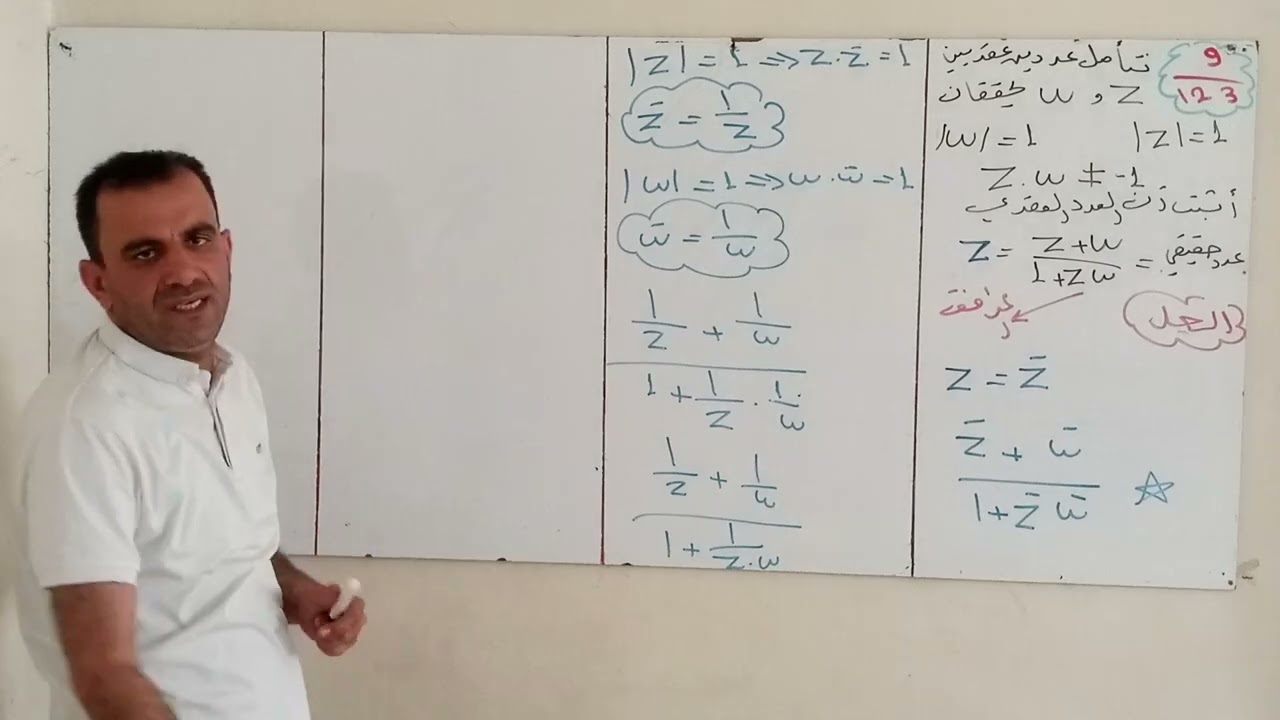 9/123
نتأمل عددين عقديين
Z و w يحققان
|w| = 1 |Z| = 1
Z.w ≠ -1
أثبت أن العدد العقدي
Z = (Z+w)/(1+Zw) = عدد حقيقي
الحل
Z = Z̄
(Z̄ + w̄)/(1+Z̄ w̄)
|Z| = 1 ⇒ Z.Z̄ = 1
Z̄ = 1/Z
|w| = 1 ⇒ w.w̄ = 1
w̄ = 1/w
(1/Z + 1/w)/(1 + 1/Z . 1/w)
(1/Z + 1/w)/(1 + 1/(Z.w))